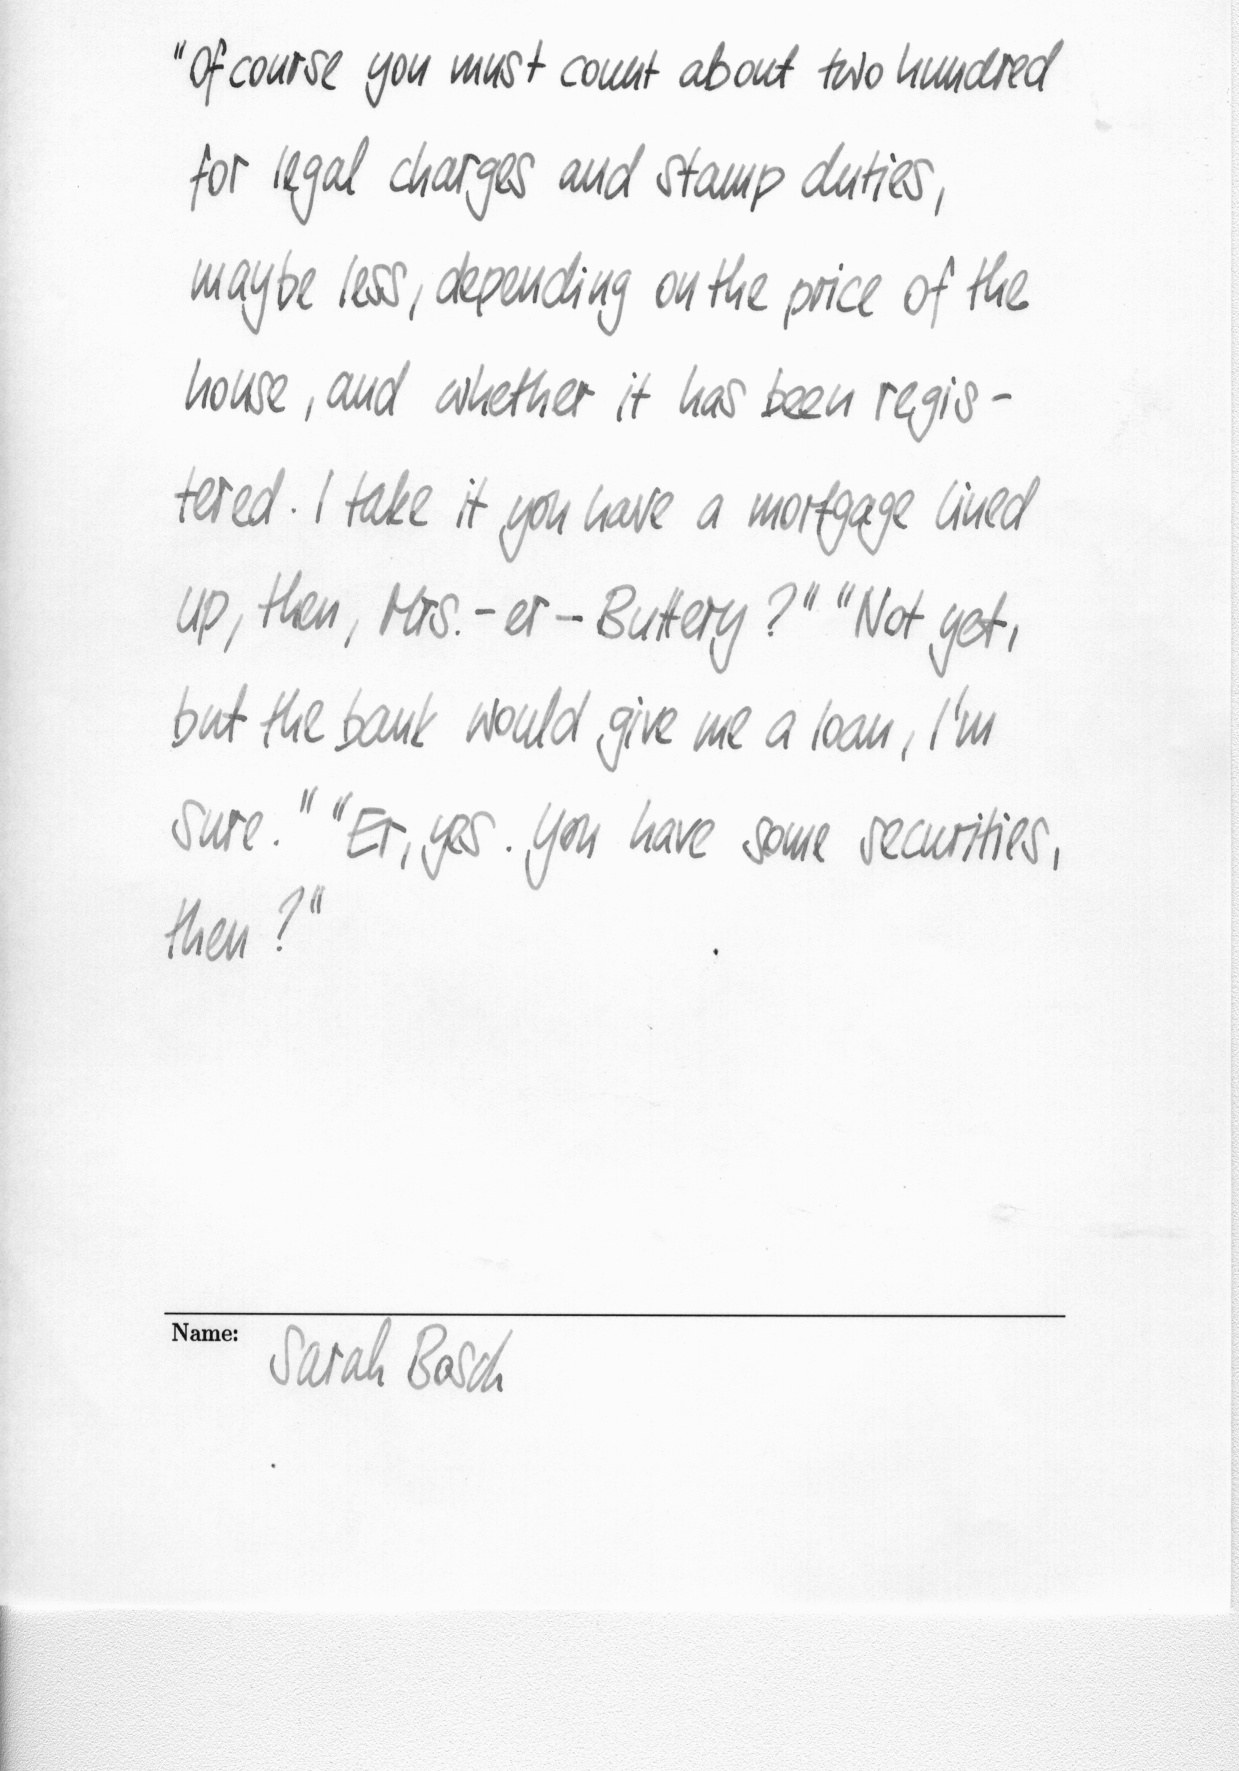 "Of course you must count about two hundred
for legal charges and stamp duties,
maybe less, depending on the price of the
house, and whether it has been regis-
tered. I take it you have a mortgage lined
up, then, Mrs. - er - Buttery?" "Not yet,
but the bank would give me a loan, I'm
sure." "Er, yes. You have some securities,
then?"
Name:
Sarah Bosch